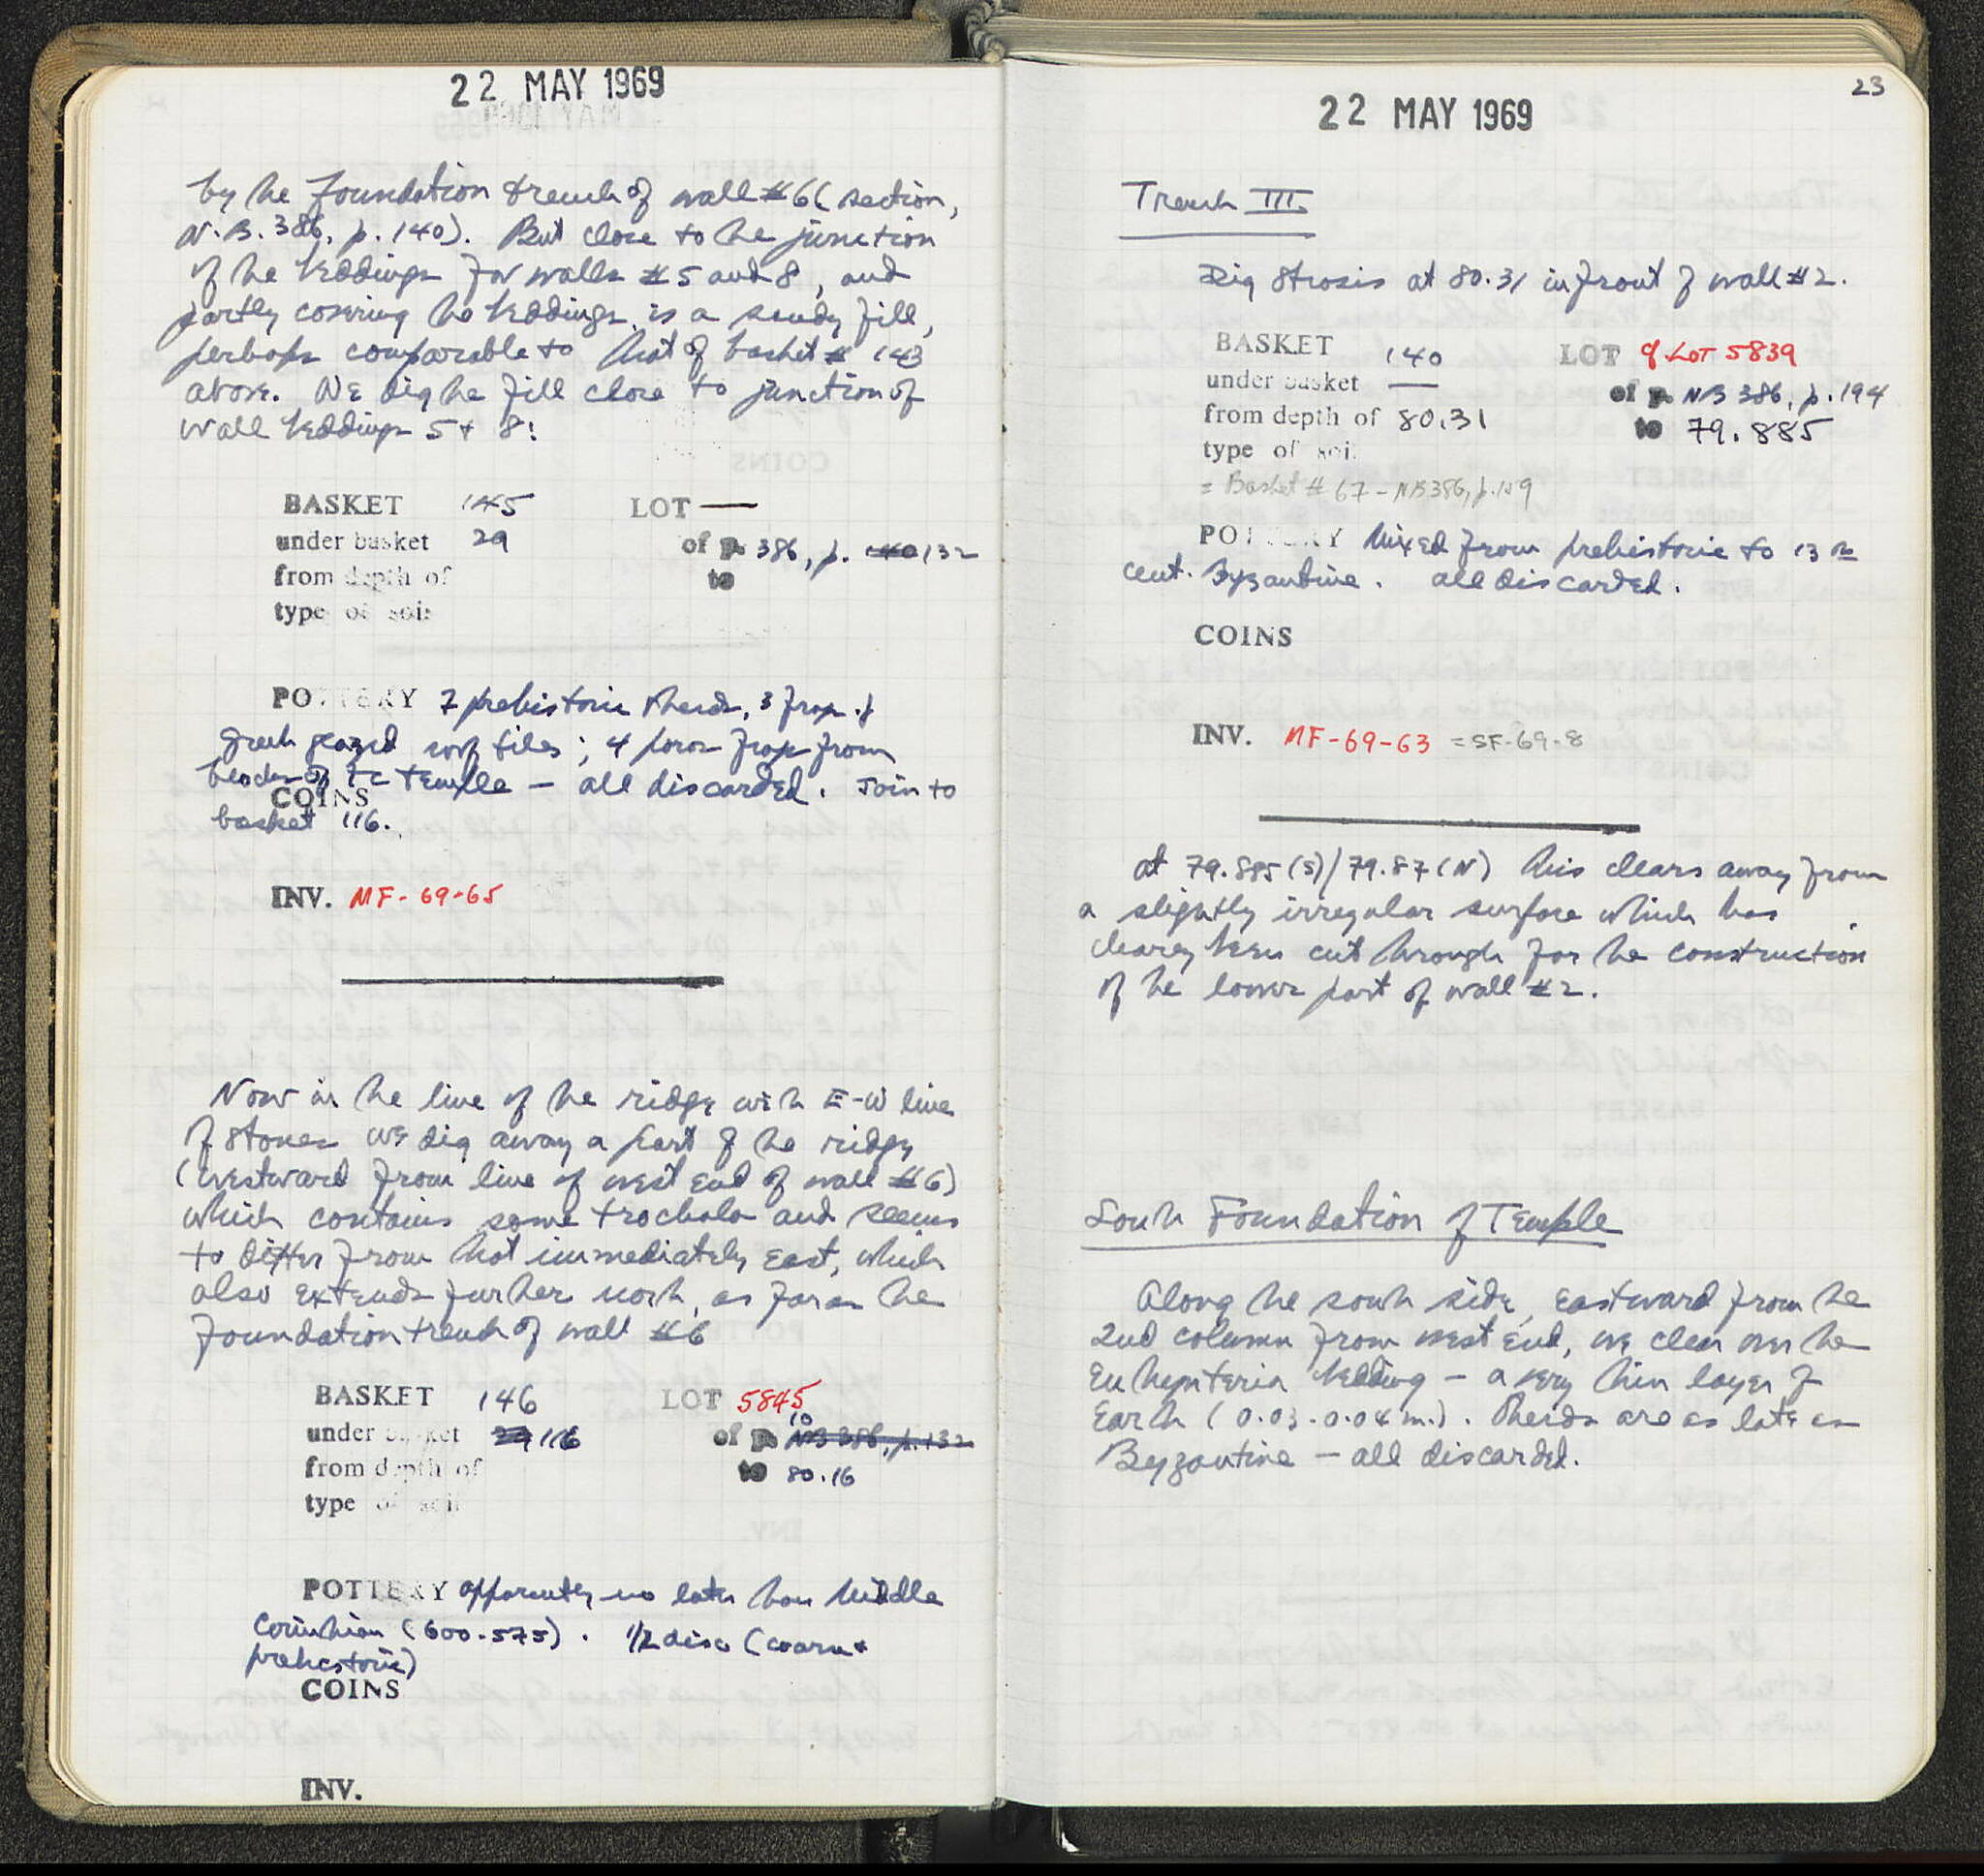 22 MAY 1969
by the foundation trench of wall #6 (section,
N.B. 386, p. 140). But close to the junction
of the beddings for walls #5 and 8, and
partly covering the beddings, is a sandy fill,
perhaps comparable to that of basket # 143
above. We dig the fill close to junction of
wall beddings 5 + 8:
BASKET 145 LOT —
under basket 29 of p. 386, p. 140 132
from depth of to
type of soil
POTTERY 7 prehistoric sherds, 3 frag. of
Greek glazed roof tiles; 4 poros frags from
blocks of TC temple — all discarded. Join to
COINS
basket 116.
INV. MF-69-65
Now in the line of the ridge with E-W line
of stones we dig away a part of the ridge
(westward from line of west end of wall #6)
which contains some trochala and seems
to differ from that immediately east, which
also extends further north, as far as the
foundation trench of wall #6
BASKET 146 LOT 5845
under basket 29 116 of p. NB 386, p. 132 10
from depth of to 80.16
type of soil
POTTERY apparently no later than Middle
Corinthian (600-575). 1/2 disc (coarse +
prehistoric)
COINS
INV.
23
22 MAY 1969
Trench III
Dig strosis at 80.31 in front of wall #2.
BASKET 140 LOT of LOT 5839
under basket — of p. NB 386, p. 194
from depth of 80.31 to 79.885
type of soil
= Basket # 67 - NB 386, p. 159
POTTERY Mixed from prehistoric to 13 th
cent. Byzantine. all discarded.
COINS
INV. MF-69-63 = SF-69-8
at 79.885 (S)/79.87 (N) this clears away from
a slightly irregular surface which has
clearly been cut through for the construction
of the lower part of wall #2.
South Foundation of Temple
Along the south side, eastward from the
2nd column from west end, we clean over the
euthynteria bedding — a very thin layer of
earth (0.03-0.04 m.). Sherds are as late as
Byzantine — all discarded.